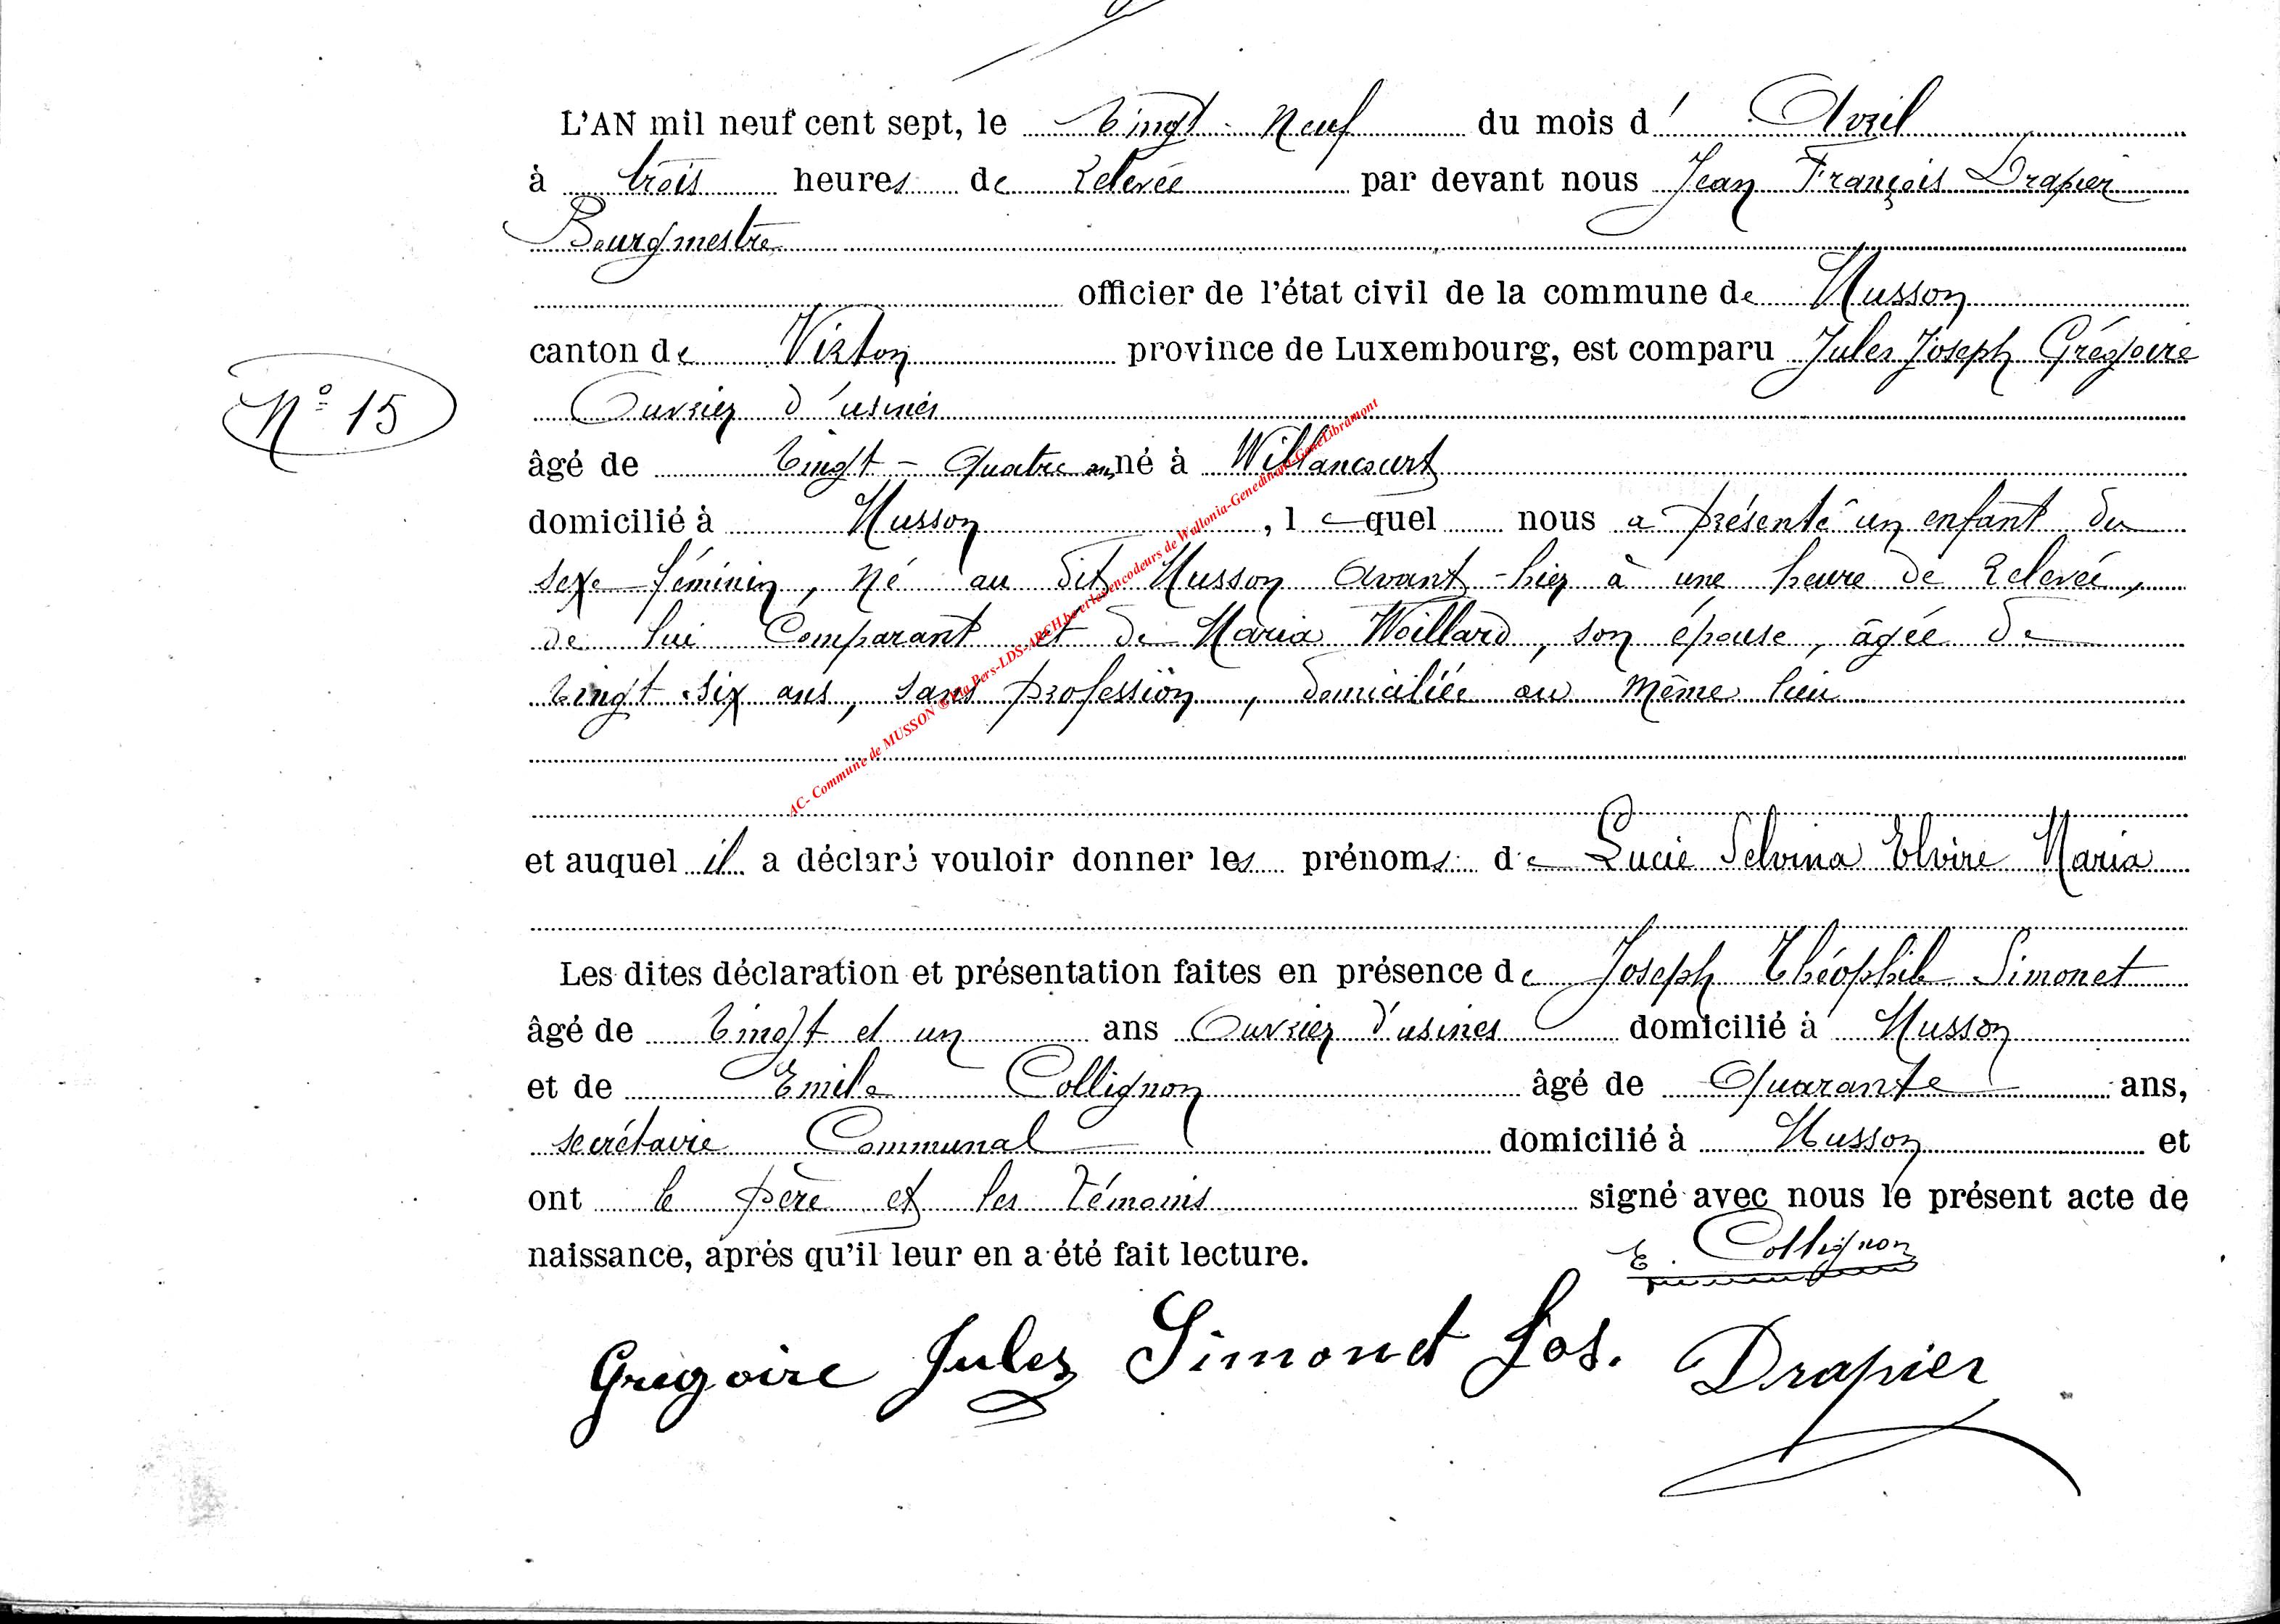 L'AN mil neuf cent sept, le Vingt-Neuf du mois d' Avril
à trois heures de Relevée par devant nous Jean François Drapier
Bourgmestre
officier de l'état civil de la commune de Musson
canton de Virton province de Luxembourg, est comparu Jules Joseph Grégoire
Nº 15
Ouvrier d'usines
âgé de Vingt-Quatre ans né à Willancourt
domicilié à Musson, lequel nous a présenté un enfant du
sexe féminin, né au dit Musson Avant-hier à une heure de Relevée,
de lui Comparant et de Maria Woillard, son épouse, âgée de
Vingt-six ans, sans profession, domiciliée au même lieu
AC- Commune de MUSSON © Pers-LDS-ARCH.be et les encodeurs de Wallonia-Genedinant-GeneLibramont
et auquel il a déclaré vouloir donner les prénoms de Lucie Selvina Elvire Maria
Les dites déclaration et présentation faites en présence de Joseph Théophile Simonet
âgé de Vingt et un ans Ouvrier d'usines domicilié à Musson
et de Emile Collignon âgé de Quarante ans,
secrétaire Communal domicilié à Musson et
ont le père et les témoins signé avec nous le présent acte de
naissance, après qu'il leur en a été fait lecture.
E. Collignon
Gregoire Jules Simonet Jos. Drapier